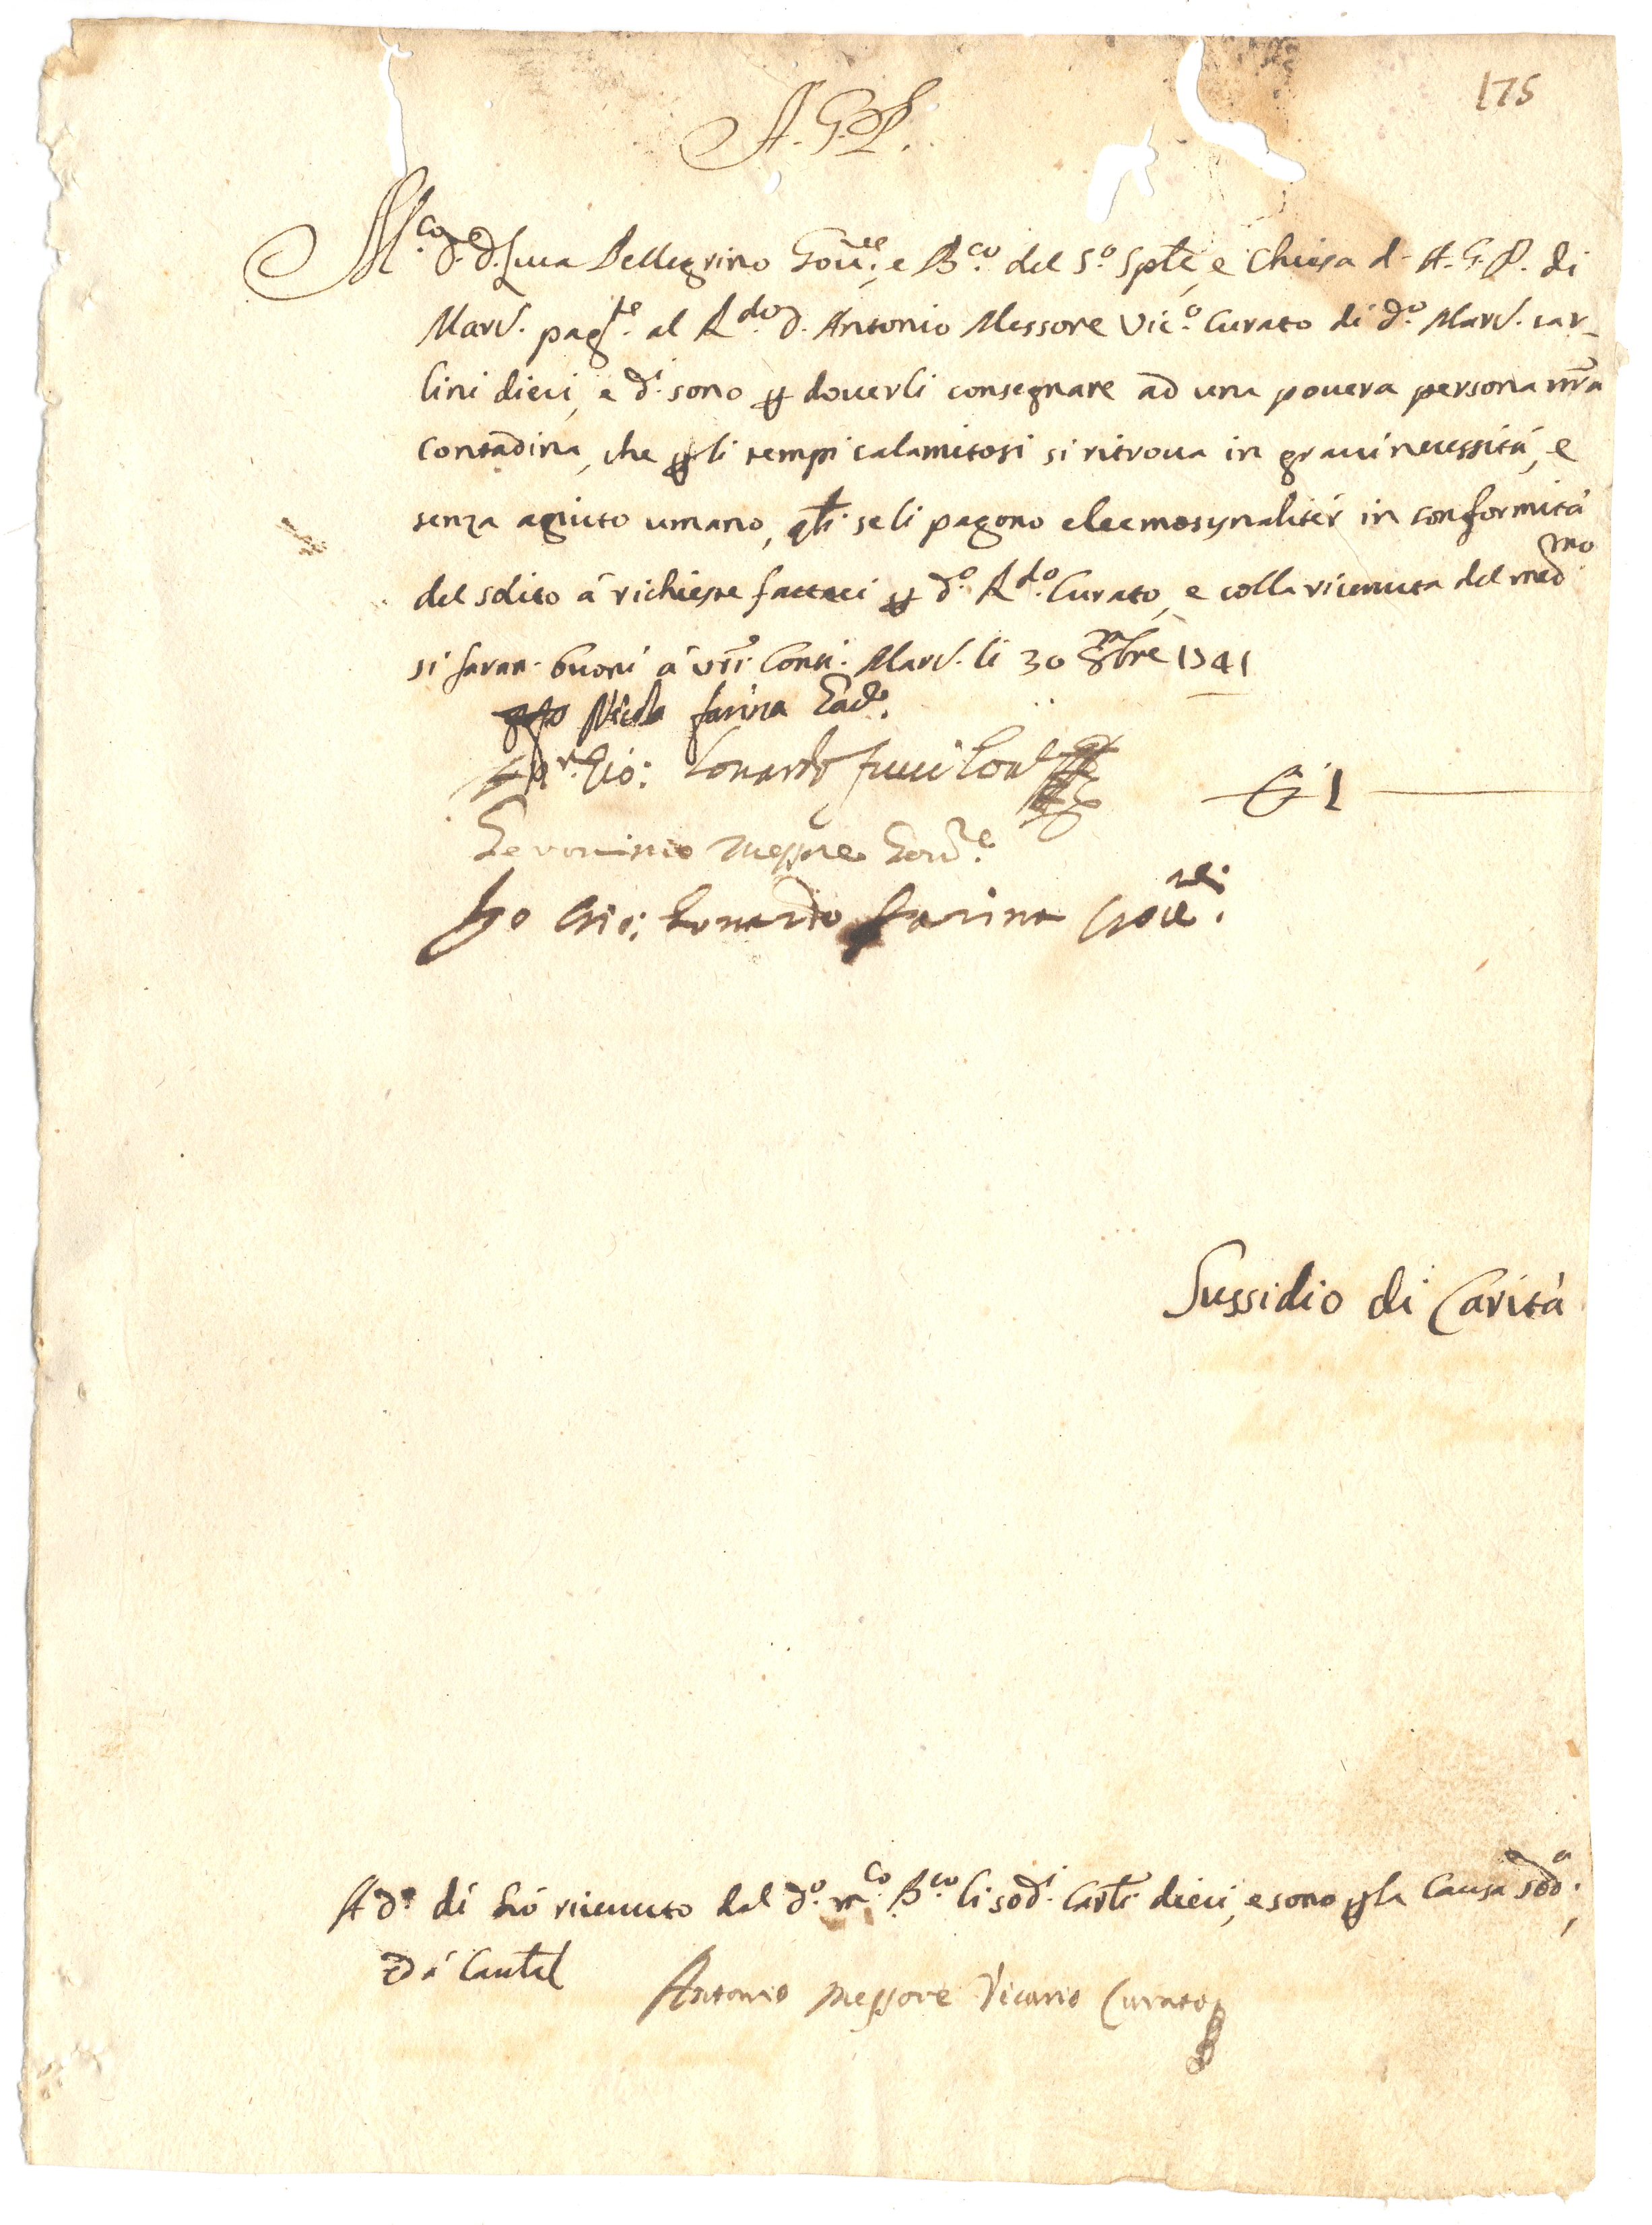 175
A. G. P.
M.co D.r D. Luca Pellegrino Gov.re, e B.co del S.o Sple, e Chiesa d. A. G. P. di
Mard. pag.te al R.do D. Antonio Messore Vic.o Curato di d.o Mard. car-
lini dieci, e d.i sono p doverli consegnare ad una povera persona nra
Contadina, che p li tempi calamitosi si ritrova in gravi necessità, e
senza agiuto umano, qli seli pagono eleemosynalitér in conformità
del solito à richieste fatteci p d.o R.do Curato, e colla ricevuta del med.mo
si faran. buoni à vri Conti. Mard. li 30 8bre 1741
Nicola farina Gov.
Gio: Lonardo fucci Gov.
Geronimo Messore Gov.re
Io Gio: Lonardo Farina
1
Sussidio di Carità
A d.o dì hò ricevuto dal d.o m.co B.co li sod.i Carli dieci, e sono p la Causa sod.a,
ed à Cautel
Antonio Messore Vicario Curato